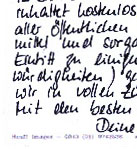 inhaltet kostenlos
aller öffentlichen
mittel und sorgt
Eintritt zu einigen
würdigkeiten) ge
wir in vollen Zü
Mit den besten
Deine